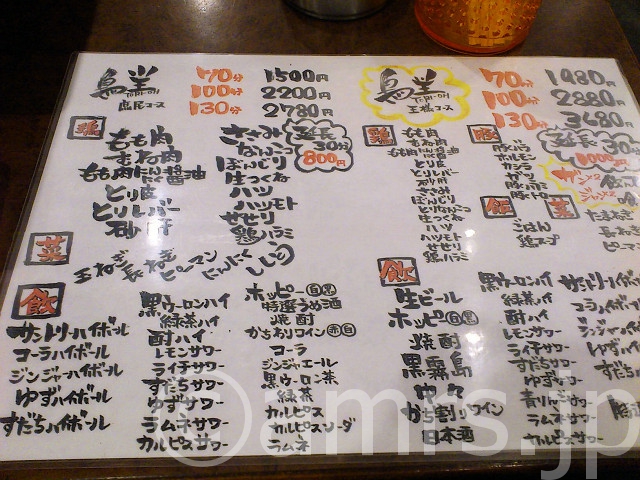 鳥王 TORI-OH
鳥民コース
70分 1500円
100分 2200円
130分 2780円
延長
30分
800円
鶏
もも肉
すね肉
もも肉にんにく醤油
とり皮
とりレバー
砂肝
ささみ
なんこつ
ぼんじり
生つくね
ハツ
ハツモト
せせり
鶏ハラミ
菜
玉ねぎ
長ねぎ
ピーマン
にんにく
ししとう
飲
サントリーハイボール
コーラハイボール
ジンジャーハイボール
ゆずハイボール
すだちハイボール
黒ウーロンハイ
緑茶ハイ
酎ハイ
レモンサワー
ライチサワー
すだちサワー
ゆずサワー
ラムネサワー
カルピスサワー
ホッピー 白 黒
特選うめ酒
焼酎
かち割りワイン 赤 白
コーラ
ジンジャエール
黒ウーロン茶
緑茶
カルピス
カルピスソーダ
ラムネ
鳥王 TORI-OH
王様コース
70分 1980円
100分 2880円
130分 3480円
延長
30分
1000円
鶏
もも肉
すね肉
もも肉にんにく醤油
とり皮
とりレバー
砂肝
ささみ
とりなんこつ
ぼんじり
生つくね
ハツ
ハツモト
せせり
鶏ハラミ
豚
豚バラ
ホルモン
カシラ
ガツ
豚ハラミ
飯
ごはん
鶏スープ
たまねぎ
長ねぎ
ピーマ
飲
生ビール
ホッピー 白 黒
焼酎
黒霧島
中々
かち割りワイン
日本酒
黒ウーロンハイ
緑茶ハイ
酎ハイ
レモンサワー
ライチサワー
すだちサワー
ゆずサワー
青リンゴサワー
ラムネサワー
カルピスサワー
サントリーハイ
コーラハイボ
ジンジャーハイ
ゆずハイボ
すだちハ
©amrs.jp